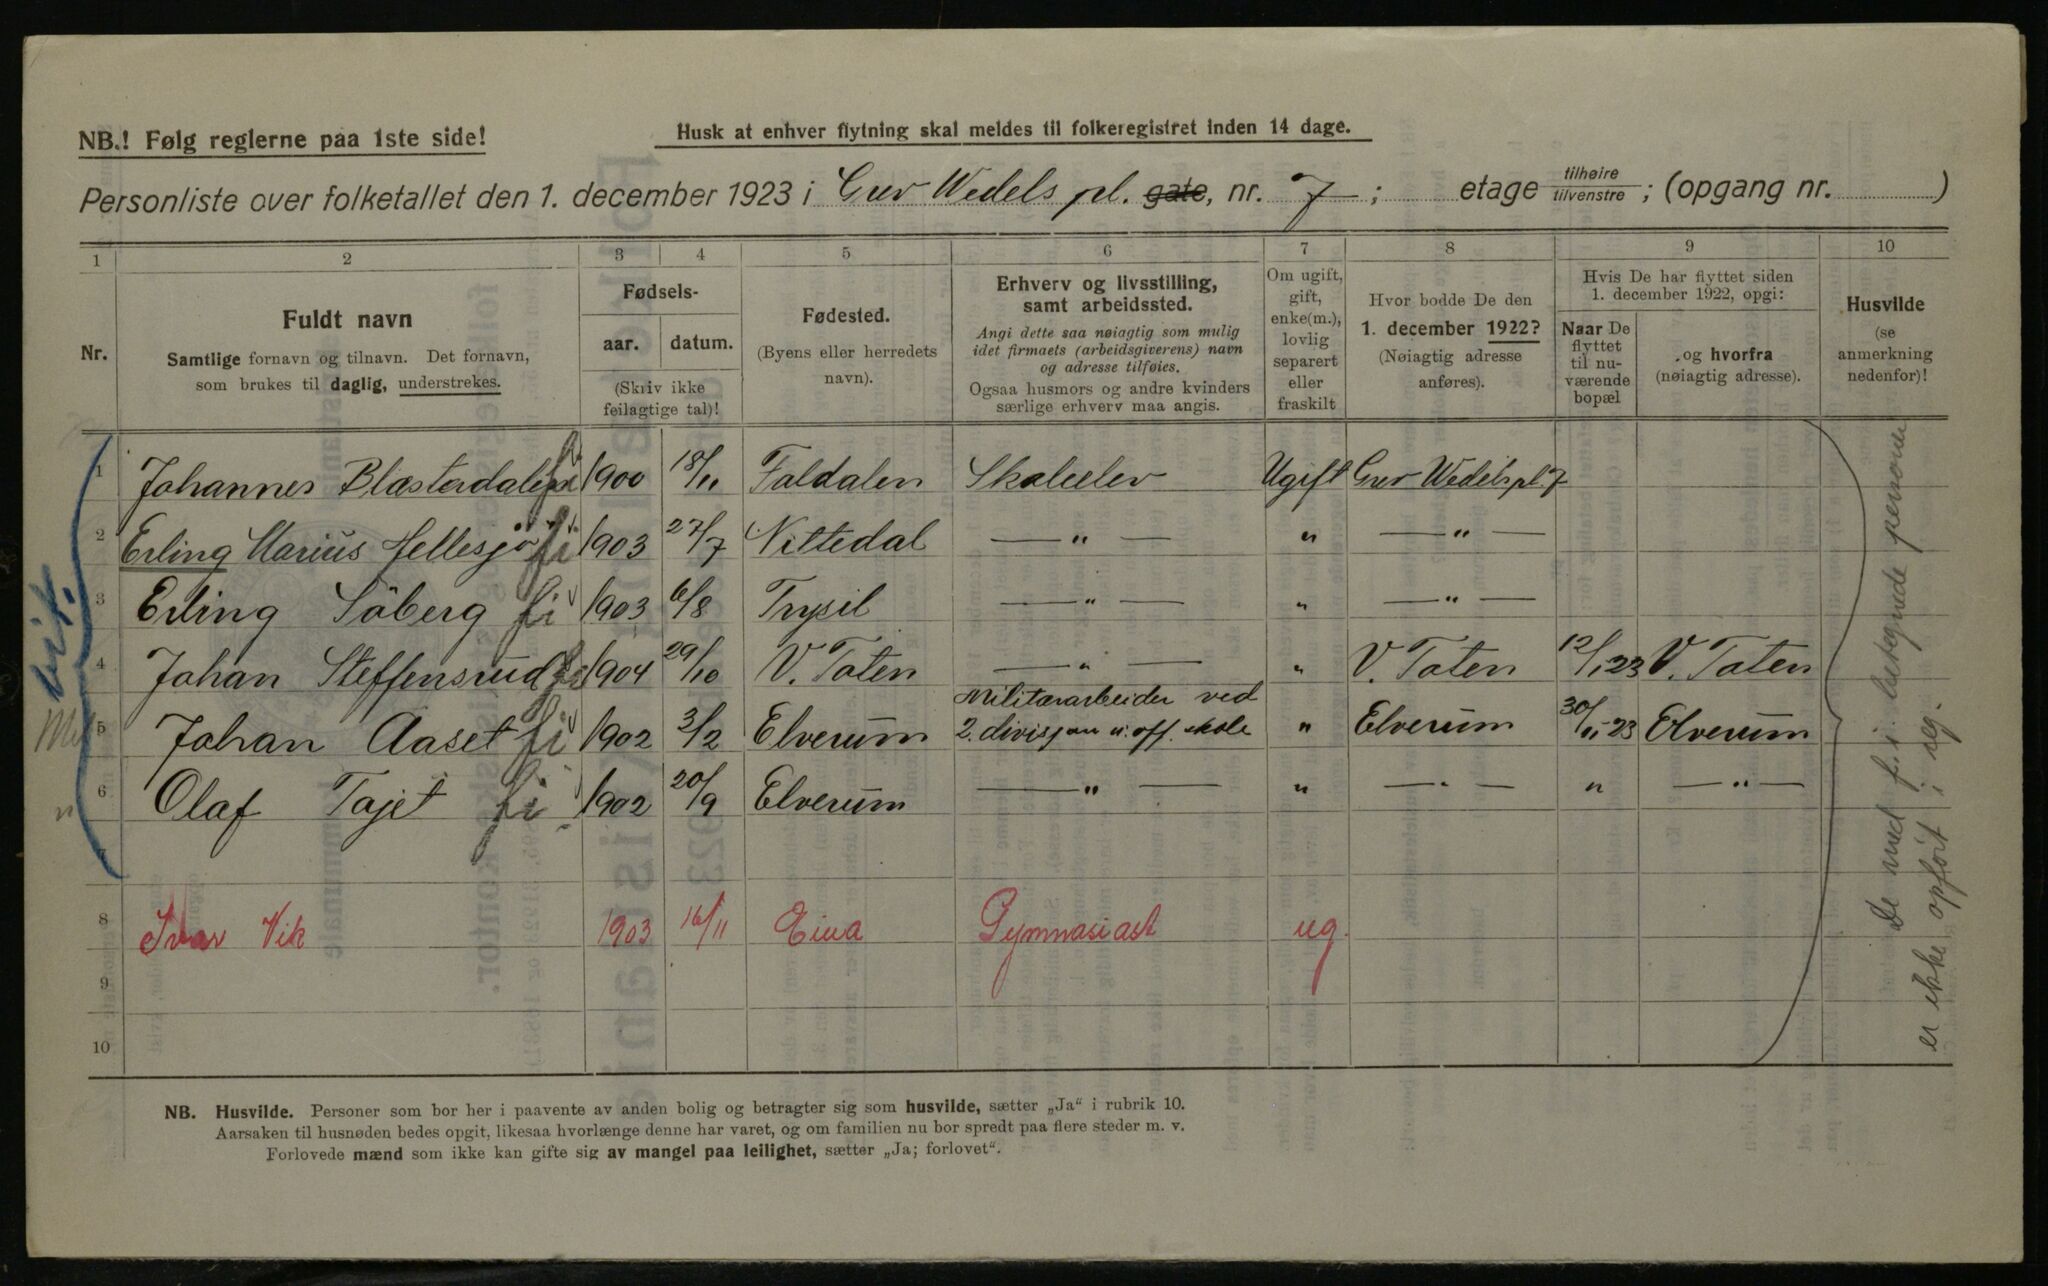 NB.! Følg reglerne paa 1ste side!
Husk at enhver flytning skal meldes til folkeregistret inden 14 dage.
Personliste over folketallet den 1. december 1923 i Grev Wedels pl. gate, nr. 7; etage tilhøire tilvenstre; (opgang nr. )
1 2 3 4 5 6 7 8 9 10
Nr.
Fuldt navn
Samtlige fornavn og tilnavn. Det fornavn,
som brukes til daglig, understrekes.
Fødsels-
aar. datum.
(Skriv ikke
feilagtige tal)!
Fødested.
(Byens eller herredets
navn).
Erhverv og livsstilling,
samt arbeidssted.
Angi dette saa nøiagtig som mulig
idet firmaets (arbeidsgiverens) navn
og adresse tilføies.
Ogsaa husmors og andre kvinders
særlige erhverv maa angis.
Om ugift,
gift,
enke(m.),
lovlig
separert
eller
fraskilt
Hvor bodde De den
1. december 1922?
(Nøiagtig adresse
anføres).
Hvis De har flyttet siden
1. december 1922, opgi:
Naar De
flyttet
til nu-
værende
bopæl
og hvorfra
(nøiagtig adresse).
Husvilde
(se
anmerkning
nedenfor)!
1 Johannes Blæsterdalen fi 1900 18/11 Faldalen Skoleelev Ugift Grev Wedels pl. 7
2 Erling Marius Hellesjö fi 1903 27/7 Nittedal — " — " — " —
3 Erling Söberg fi 1903 6/8 Trysil — " — " — " —
4 Johan Steffensrud fi 1904 29/10 V. Toten — " — " V. Toten 12/1 23 V. Toten
5 Johan Aaset fi 1902 3/2 Elverum Militærarbeider ved
2. divisjon u. off. skole " Elverum 30/11-23 Elverum
6 Olaf Tajet fi 1902 20/9 Elverum — " — " — " — " — " —
7
8 Ivar Vik 1903 16/11 Eina Gymnasiast ug.
9
10
De med f.i. betegnede personer
er ikke opført i sfg.
NB. Husvilde. Personer som bor her i paavente av anden bolig og betragter sig som husvilde, sætter „Ja“ i rubrik 10.
Aarsaken til husnøden bedes opgit, likesaa hvorlænge denne har varet, og om familien nu bor spredt paa flere steder m. v.
Forlovede mænd som ikke kan gifte sig av mangel paa leilighet, sætter „Ja; forlovet“.